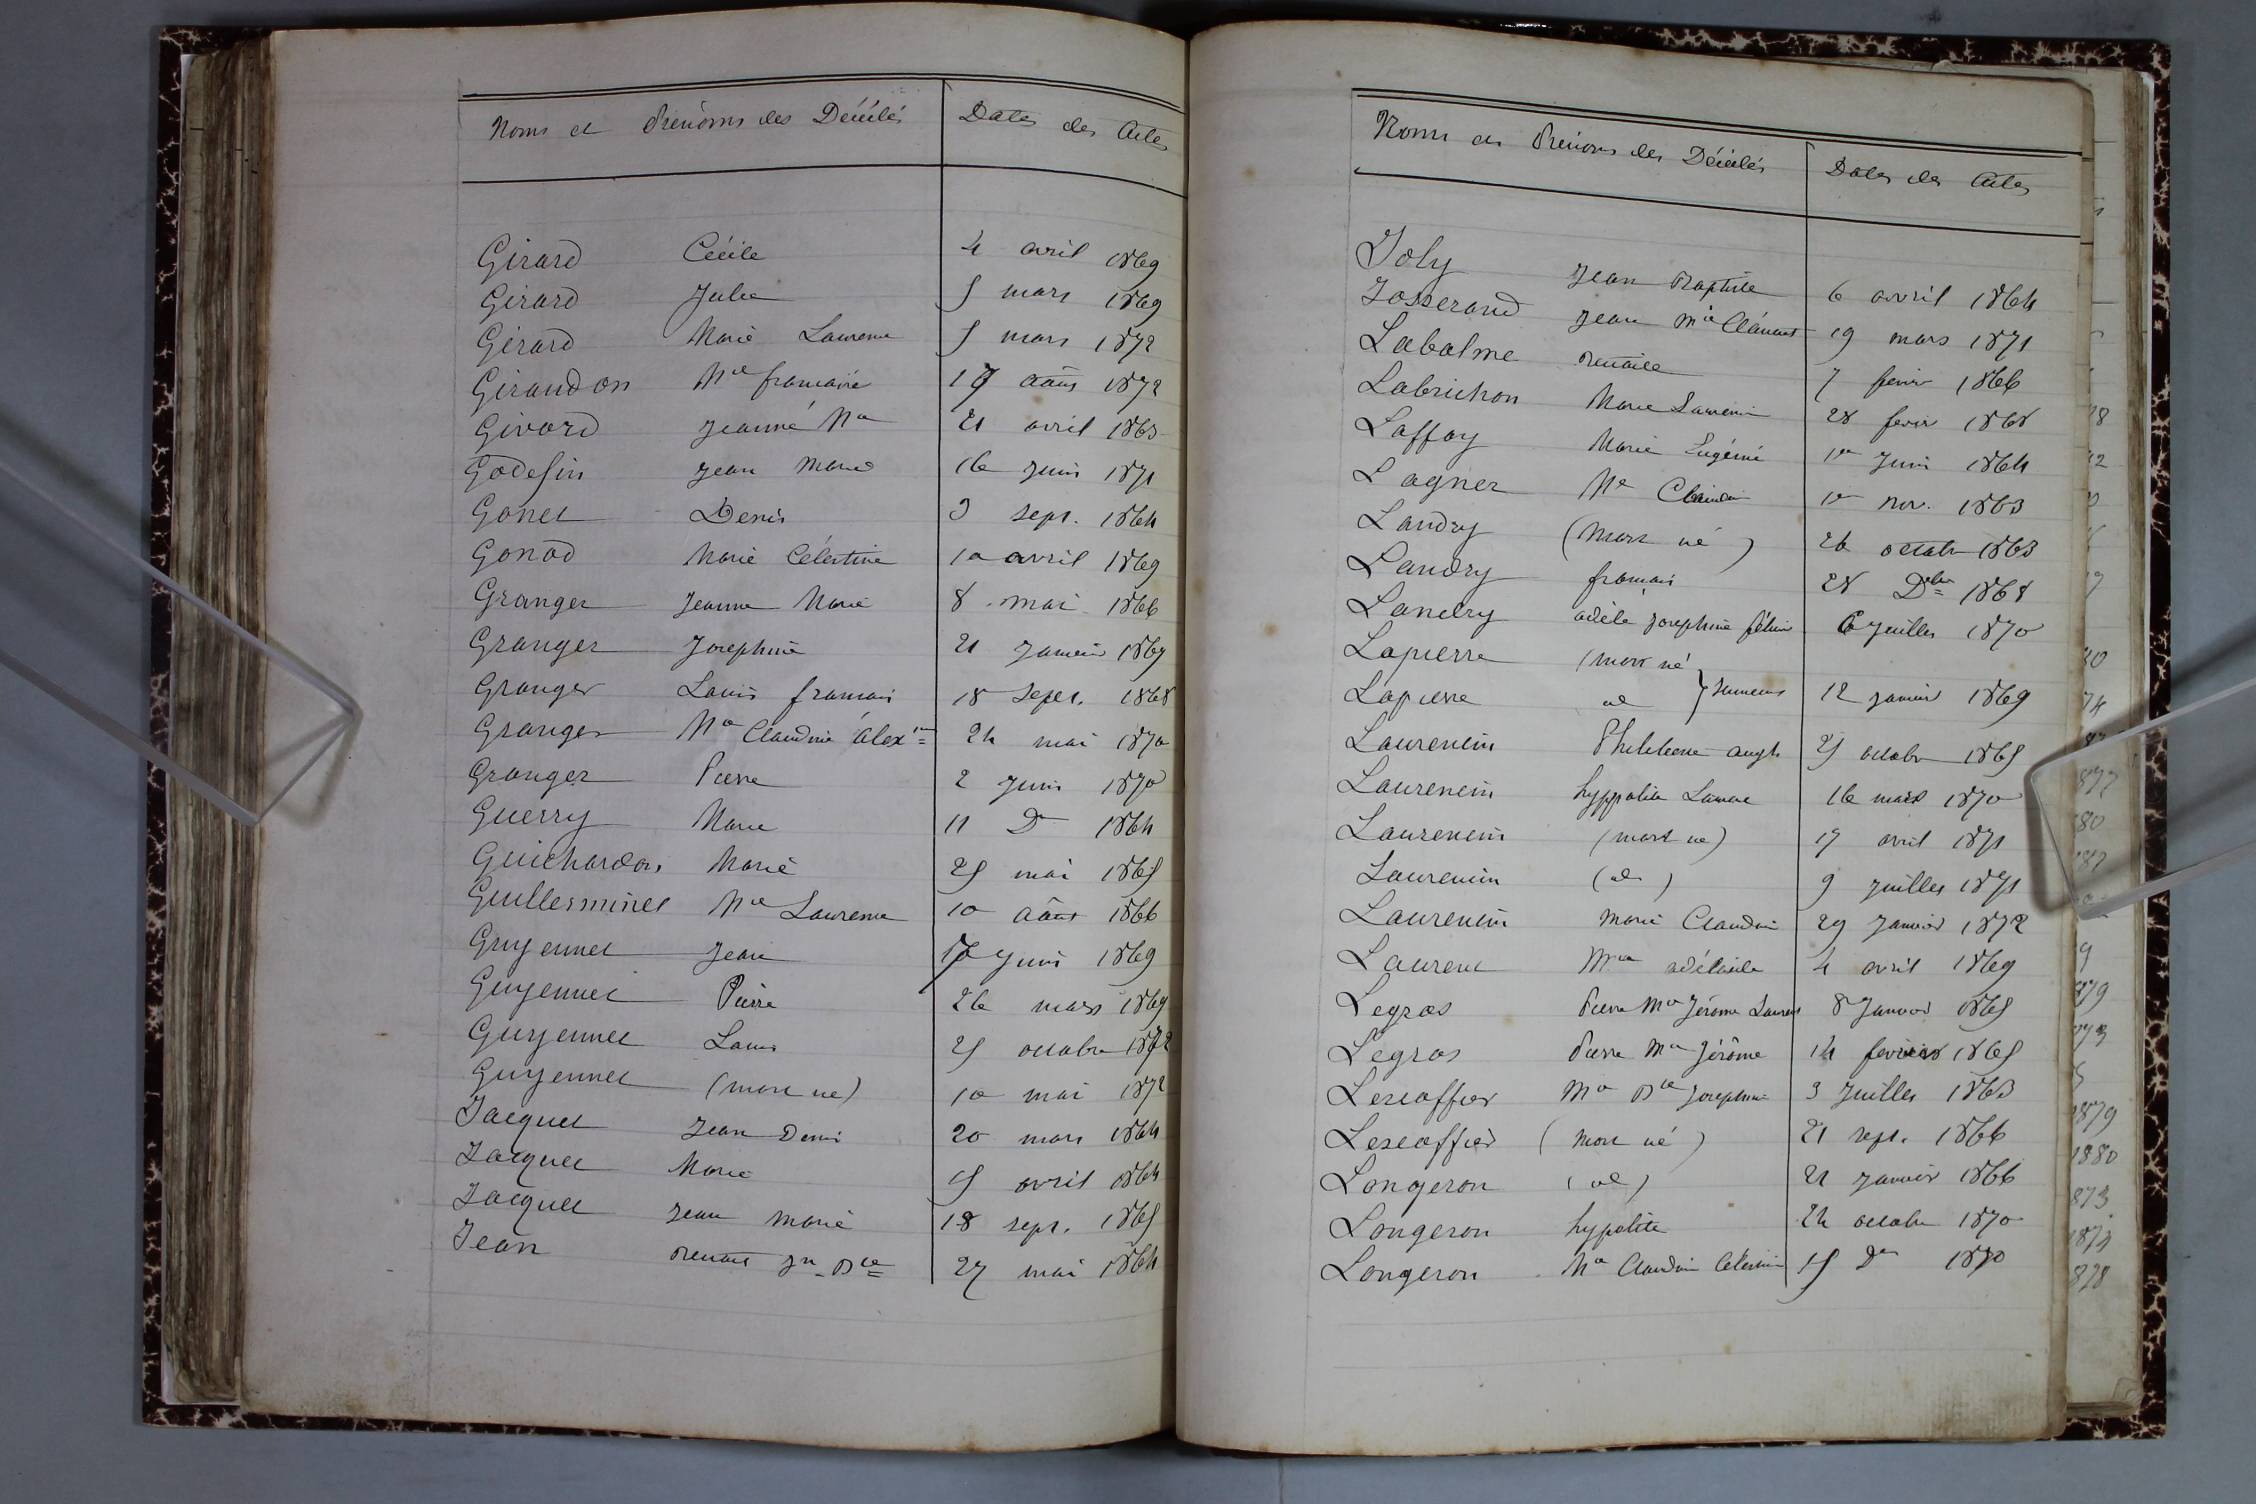 Noms et Prénoms des Décédés Dates des Actes
Girard Cécile 4 avril 1869
Girard Julie 5 mars 1869
Girard Marie Laurence 5 mars 1872
Giraudon Mie francoise 17 août 1872
Givord Jeanne Ma 21 avril 1863
Godefin Jean Marie 16 Juin 1871
Gonet Denis 3 sept. 1864
Gonod Marie Célestine 10 avril 1869
Granger Jeanne Marie 8 mai 1866
Granger Josephine 21 Janvier 1867
Granger Louis francois 18 Sept. 1868
Granger Ma Claudine Alexine 24 mai 1870
Granger Pierre 2 Juin 1870
Guerry Marie 11 De 1864
Guichardon Marie 25 mai 1865
Guillerminet Mie Laurence 10 août 1866
Guyennet Jean Juin 1869
Guyennet Pierre 26 mars 1869
Guyennet Louis 25 octobre 1872
Guyennet (mort né) 10 mai 1872
Jacquet Jean Denis 20 mars 1864
Jacquet Marie 15 avril 1864
Jacquet Jean Marie 18 sept. 1865
Jean Benoit Jn Bte 27 mai 1864
Noms et Prénoms des Décédés Dates des Actes
Joly Jean Baptiste 6 avril 1864
Josserand Jean Mie Clément 19 mars 1871
Labalme Benoite 7 fevrier 1866
Labruchon Marie Laurencin 28 fevrier 1868
Laffay Marie Eugénie 1er Juin 1864
Lagner Me Claudine 1er nov. 1863
Landry (Mort né) 26 octobre 1863
Landry francois 28 Dbre 1868
Landry adèle Josephine 6 Juillet 1870
Lapierre (mort né
Lapierre id } Jumeaux 12 janvier 1869
Laurencin Philiberte 25 octobre 1865
Laurencin hyppolite 16 mars 1870
Laurencin (mort né) 17 avril 1871
Laurencin (id) 9 Juillet 1871
Laurencin Marie Claudine 29 Janvier 1872
Laurent Mie adélaide 4 avril 1869
Legros Pierre Mie Jérôme Laurent 8 Janvier 1865
Legros Pierre Mie Jérôme 14 fevrier 1865
Lescoffier Ma Bte Josephine 3 Juillet 1863
Lescoffier (mort né) 21 sept. 1866
Longeron (id) 21 Janvier 1866
Longeron hypolite 24 octobre 1870
Longeron Ma Claudine Célestine 15 De 1870